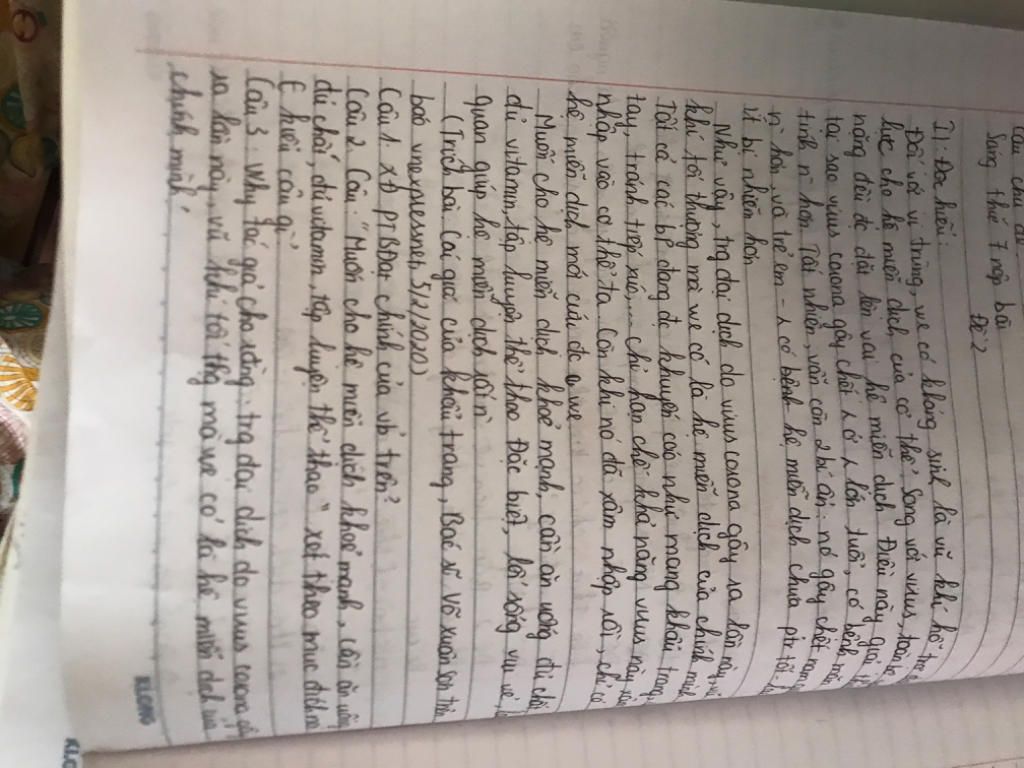 Sáng thứ 7 nộp bài
Đề 2
I: Đọc hiểu:
Đối với vi trùng, we có kháng sinh là vũ khí hỗ trợ
lực cho hệ miễn dịch của cơ thể. Song với virus, toàn bộ
nặng đều đè lên vai hệ miễn dịch. Điều này giải
tại sao virus corona gây chết ở lớn tuổi, có bệnh
tính n` hơn. Tất nhiên, vẫn còn 2 bí ẩn: nó gây chết nam
n` hơn và trẻ em - có bệnh hệ miễn dịch chưa ptr tốt
ít bị nhiễm hơn
Như vậy, trg đại dịch do virus corona gây ra lần này, vũ
khí tối thượng mà we có là hệ miễn dịch của chính mình
Tất cả các bp đang đc khuyến cáo như mang khẩu trang,
tay, tránh tiếp xúc,... chỉ hạn chế khả năng virus này
nhập vào cơ thể ta. Còn khi nó đã xâm nhập rồi, chỉ có
hệ miễn dịch mới cứu đc we
Muốn cho hệ miễn dịch khoẻ mạnh, cần ăn uống đủ chất,
đủ vitamin, tập luyện thể thao. Đặc biệt, lối sống vui vẻ,
quan giúp hệ miễn dịch rất n`
(Trích bài Cái giá của khẩu trang, Bác sĩ Võ Xuân Sơn
báo vnexpress.net, 5/2/2020)
Câu 1. XĐ PTBĐạt chính của vb trên?
Câu 2. Câu: "Muốn cho hệ miễn dịch khoẻ mạnh, cần ăn uống
đủ chất, đủ vitamin, tập luyện thể thao" xét theo mục đích nói
kiểu câu gì?
Câu 3: Why tác giả cho rằng: trg đại dịch do virus corona gây
ra lần này, vũ khí tối thg mà we có là hệ miễn dịch của
chính mình."
KLONG